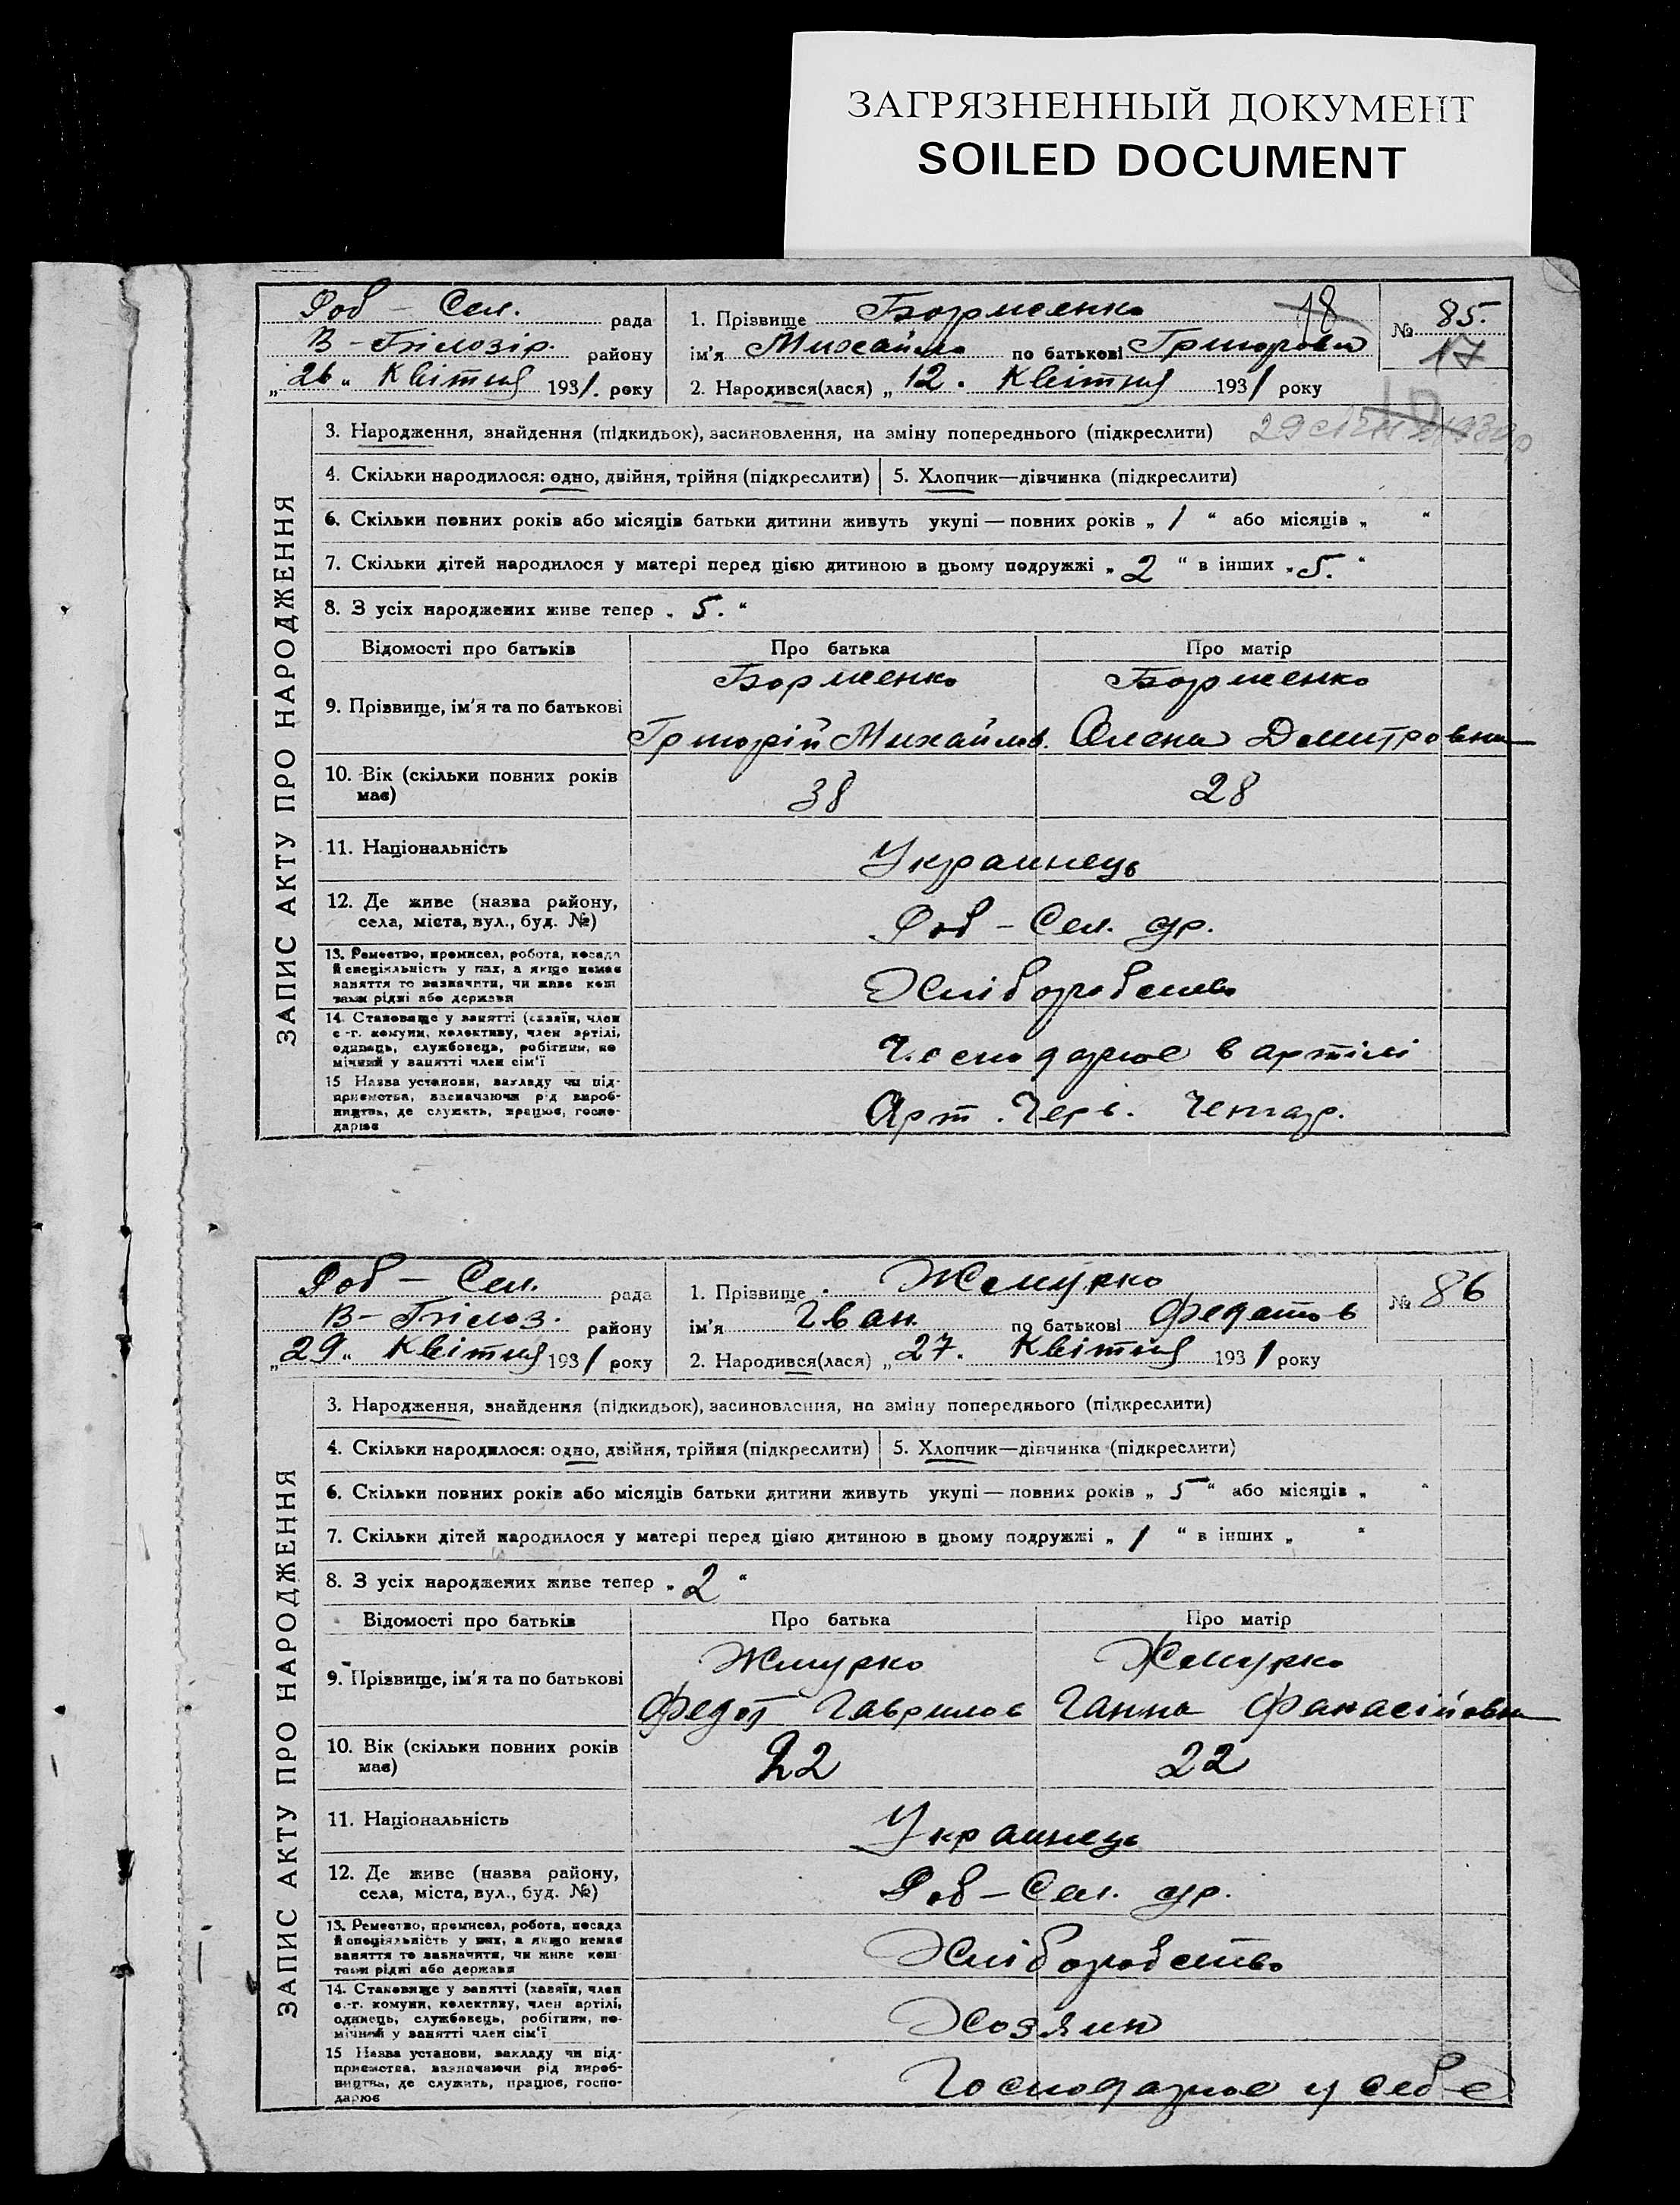 ЗАГРЯЗНЕННЫЙ ДОКУМЕНТ
SOILED DOCUMENT
Роб - Сел. рада
В-Білозір. району
„26“ Квітня 1931. року
1. Прізвище Борменко 18
ім'я Михайло по батькові Григоров
2. Народився(лася) „12. Квітня 1931 року
№ 85.
17
ЗАПИС АКТУ ПРО НАРОДЖЕННЯ
3. Народження, знайдення (підкидьок), засиновлення, на зміну попереднього (підкреслити)
4. Скільки народилося: одно, двійня, трійня (підкреслити) 5. Хлопчик—дівчинка (підкреслити)
6. Скільки повних років або місяців батьки дитини живуть укупі — повних років „ 1 “ або місяців „ “
7. Скільки дітей народилося у матері перед цією дитиною в цьому подружжі „ 2 “ в інших „5.“
8. З усіх народжених живе тепер „ 5. “
Відомості про батьків Про батька Про матір
9. Прізвище, ім'я та по батькові
Борменко Борменко
Григорій Михайлов. Олена Дмитровна
10. Вік (скільки повних років має) 38 28
11. Національність Украинець
12. Де живе (назва району, села, міста, вул., буд. №) Роб - Сел.
13. Ремество, промисел, робота, посада
й спеціяльність у них, а якщо немає
заняття то зазначити, чи живе кош
тами рідні або держави
Хліборобство
14. Становище у занятті (хазяїн, член
с.-г. комуни, колективу, член артілі,
одинець, службовець, робітник, по
мічний у занятті член сім'ї
в артілі
15 Назва установи, закладу чи під-
приємства, зазначаючи рід вироб-
ництва, де служить, працює, госпо-
дарює
Арт. Черв.
Роб - Сел. рада
В-Білоз. району
„29“ Квітня 1931 року
1. Прізвище Жмурко
ім'я Іван. по батькові Федотов
2. Народився(лася) „27. Квітня 1931 року
№ 86
ЗАПИС АКТУ ПРО НАРОДЖЕННЯ
3. Народження, знайдення (підкидьок), засиновлення, на зміну попереднього (підкреслити)
4. Скільки народилося: одно, двійня, трійня (підкреслити) 5. Хлопчик—дівчинка (підкреслити)
6. Скільки повних років або місяців батьки дитини живуть укупі — повних років „ 5 “ або місяців „ “
7. Скільки дітей народилося у матері перед цією дитиною в цьому подружжі „ 1 “ в інших „ “
8. З усіх народжених живе тепер „ 2 “
Відомості про батьків Про батька Про матір
9. Прізвище, ім'я та по батькові
Жмурко Жмурко
Федот Гаврилов Ганна Фанасіївна
10. Вік (скільки повних років має) 22 22
11. Національність Украинець
12. Де живе (назва району, села, міста, вул., буд. №) Роб - Сел.
13. Ремество, промисел, робота, посада
й спеціяльність у них, а якщо немає
заняття то зазначити, чи живе кош
тами рідні або держави
Хліборобство
14. Становище у занятті (хазяїн, член
с.-г. комуни, колективу, член артілі,
одинець, службовець, робітник, по-
мічний у занятті член сім'ї
Хозяин
15 Назва установи, закладу чи під-
приємства, зазначаючи рід вироб-
ництва, де служить, працює, госпо-
дарює
Господарює у себе